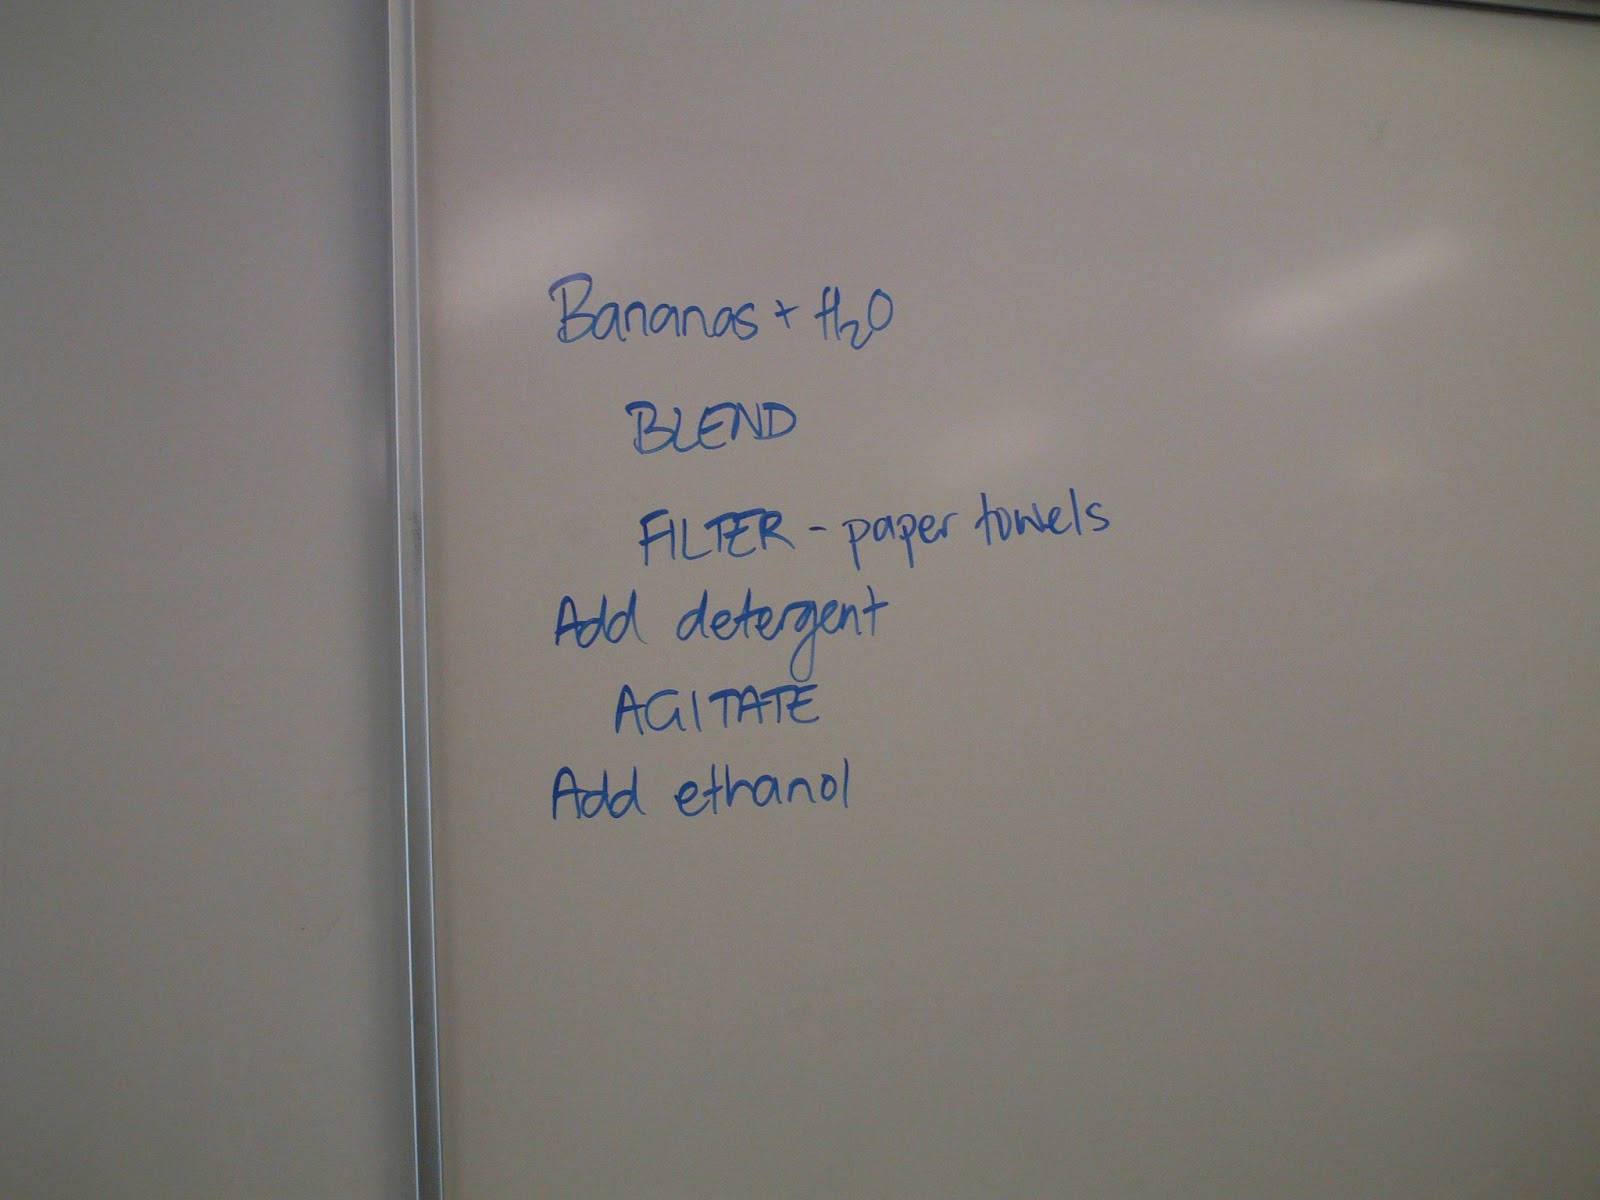 Bananas + H₂O
BLEND
FILTER - paper towels
Add detergent
AGITATE
Add ethanol